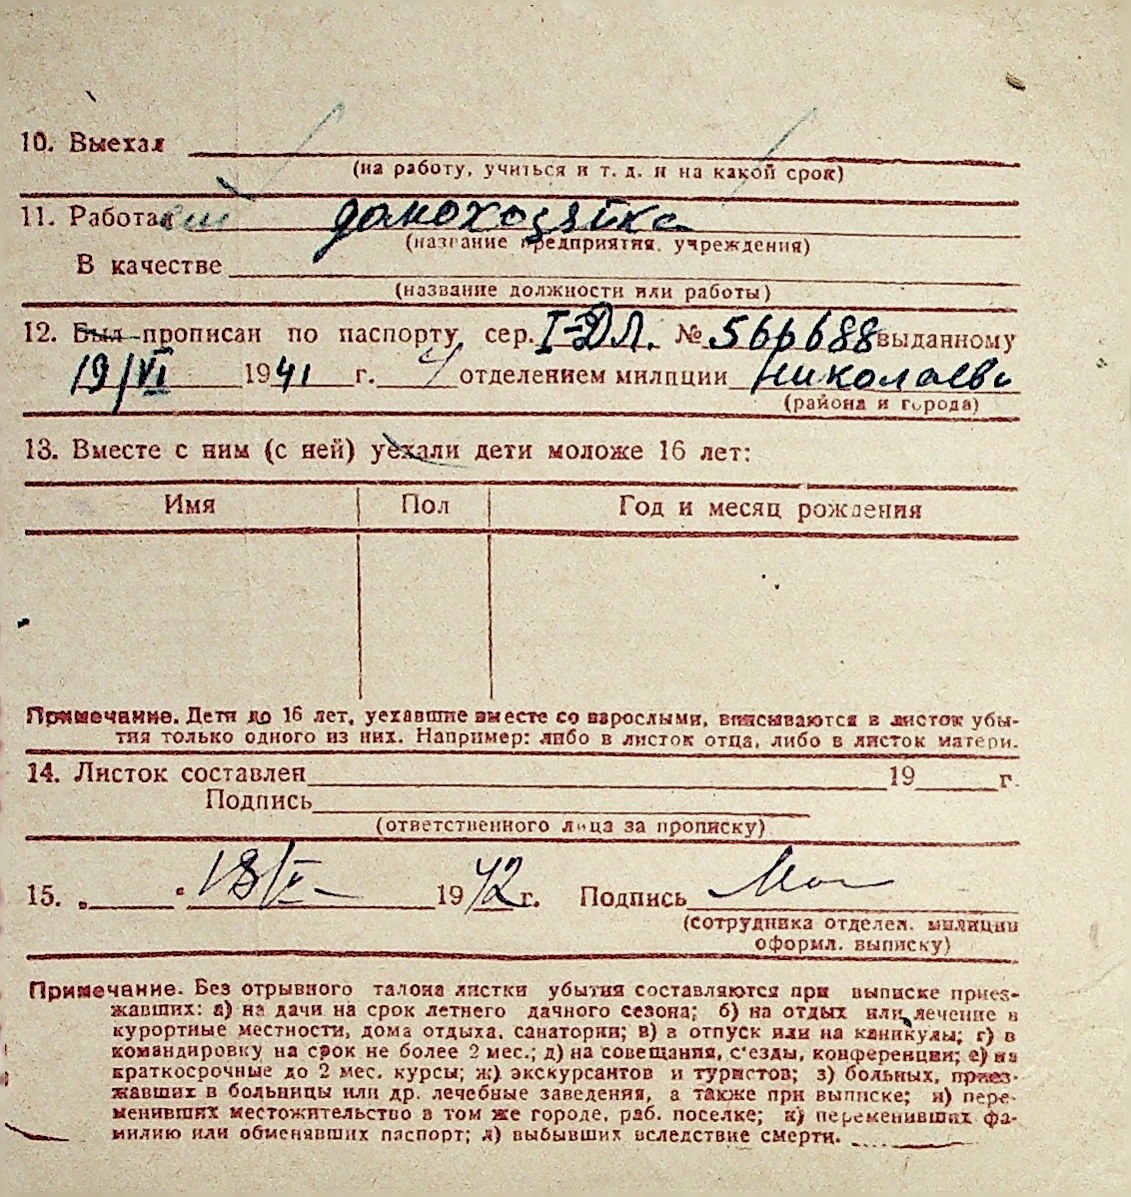 10. Выехал
(на работу, учиться и т. д. и на какой срок)
11. Работал домохозяйка
(название предприятия, учреждения)
В качестве
(название должности или работы)
12. Был прописан по паспорту сер. I-ДЛ. № 566688 выданному
19/VI 1941 г. 4 отделением милиции Николаева
(района и города)
13. Вместе с ним (с ней) уехали дети моложе 16 лет:
Имя Пол Год и месяц рождения
Примечание. Дети до 16 лет, уехавшие вместе со взрослыми, вписываются в листок убы-
тия только одного из них. Например: либо в листок отца, либо в листок матери.
14. Листок составлен 19 г.
Подпись
(ответственного лица за прописку)
15. „ “ 1942 г. Подпись
(сотрудника отделен. милиции
оформл. выписку)
Примечание. Без отрывного талона листки убытия составляются при выписке приез-
жавших: а) на дачи на срок летнего дачного сезона; б) на отдых или лечение в
курортные местности, дома отдыха, санатории; в) в отпуск или на каникулы; г) в
командировку на срок не более 2 мес.; д) на совещания, с'езды, конференции; е) на
краткосрочные до 2 мес. курсы; ж) экскурсантов и туристов; з) больных, приез-
жавших в больницы или др. лечебные заведения, а также при выписке; и) пере-
менивших местожительство в том же городе, раб. поселке; к) переменивших фа-
милию или обменявших паспорт; л) выбывших вследствие смерти.